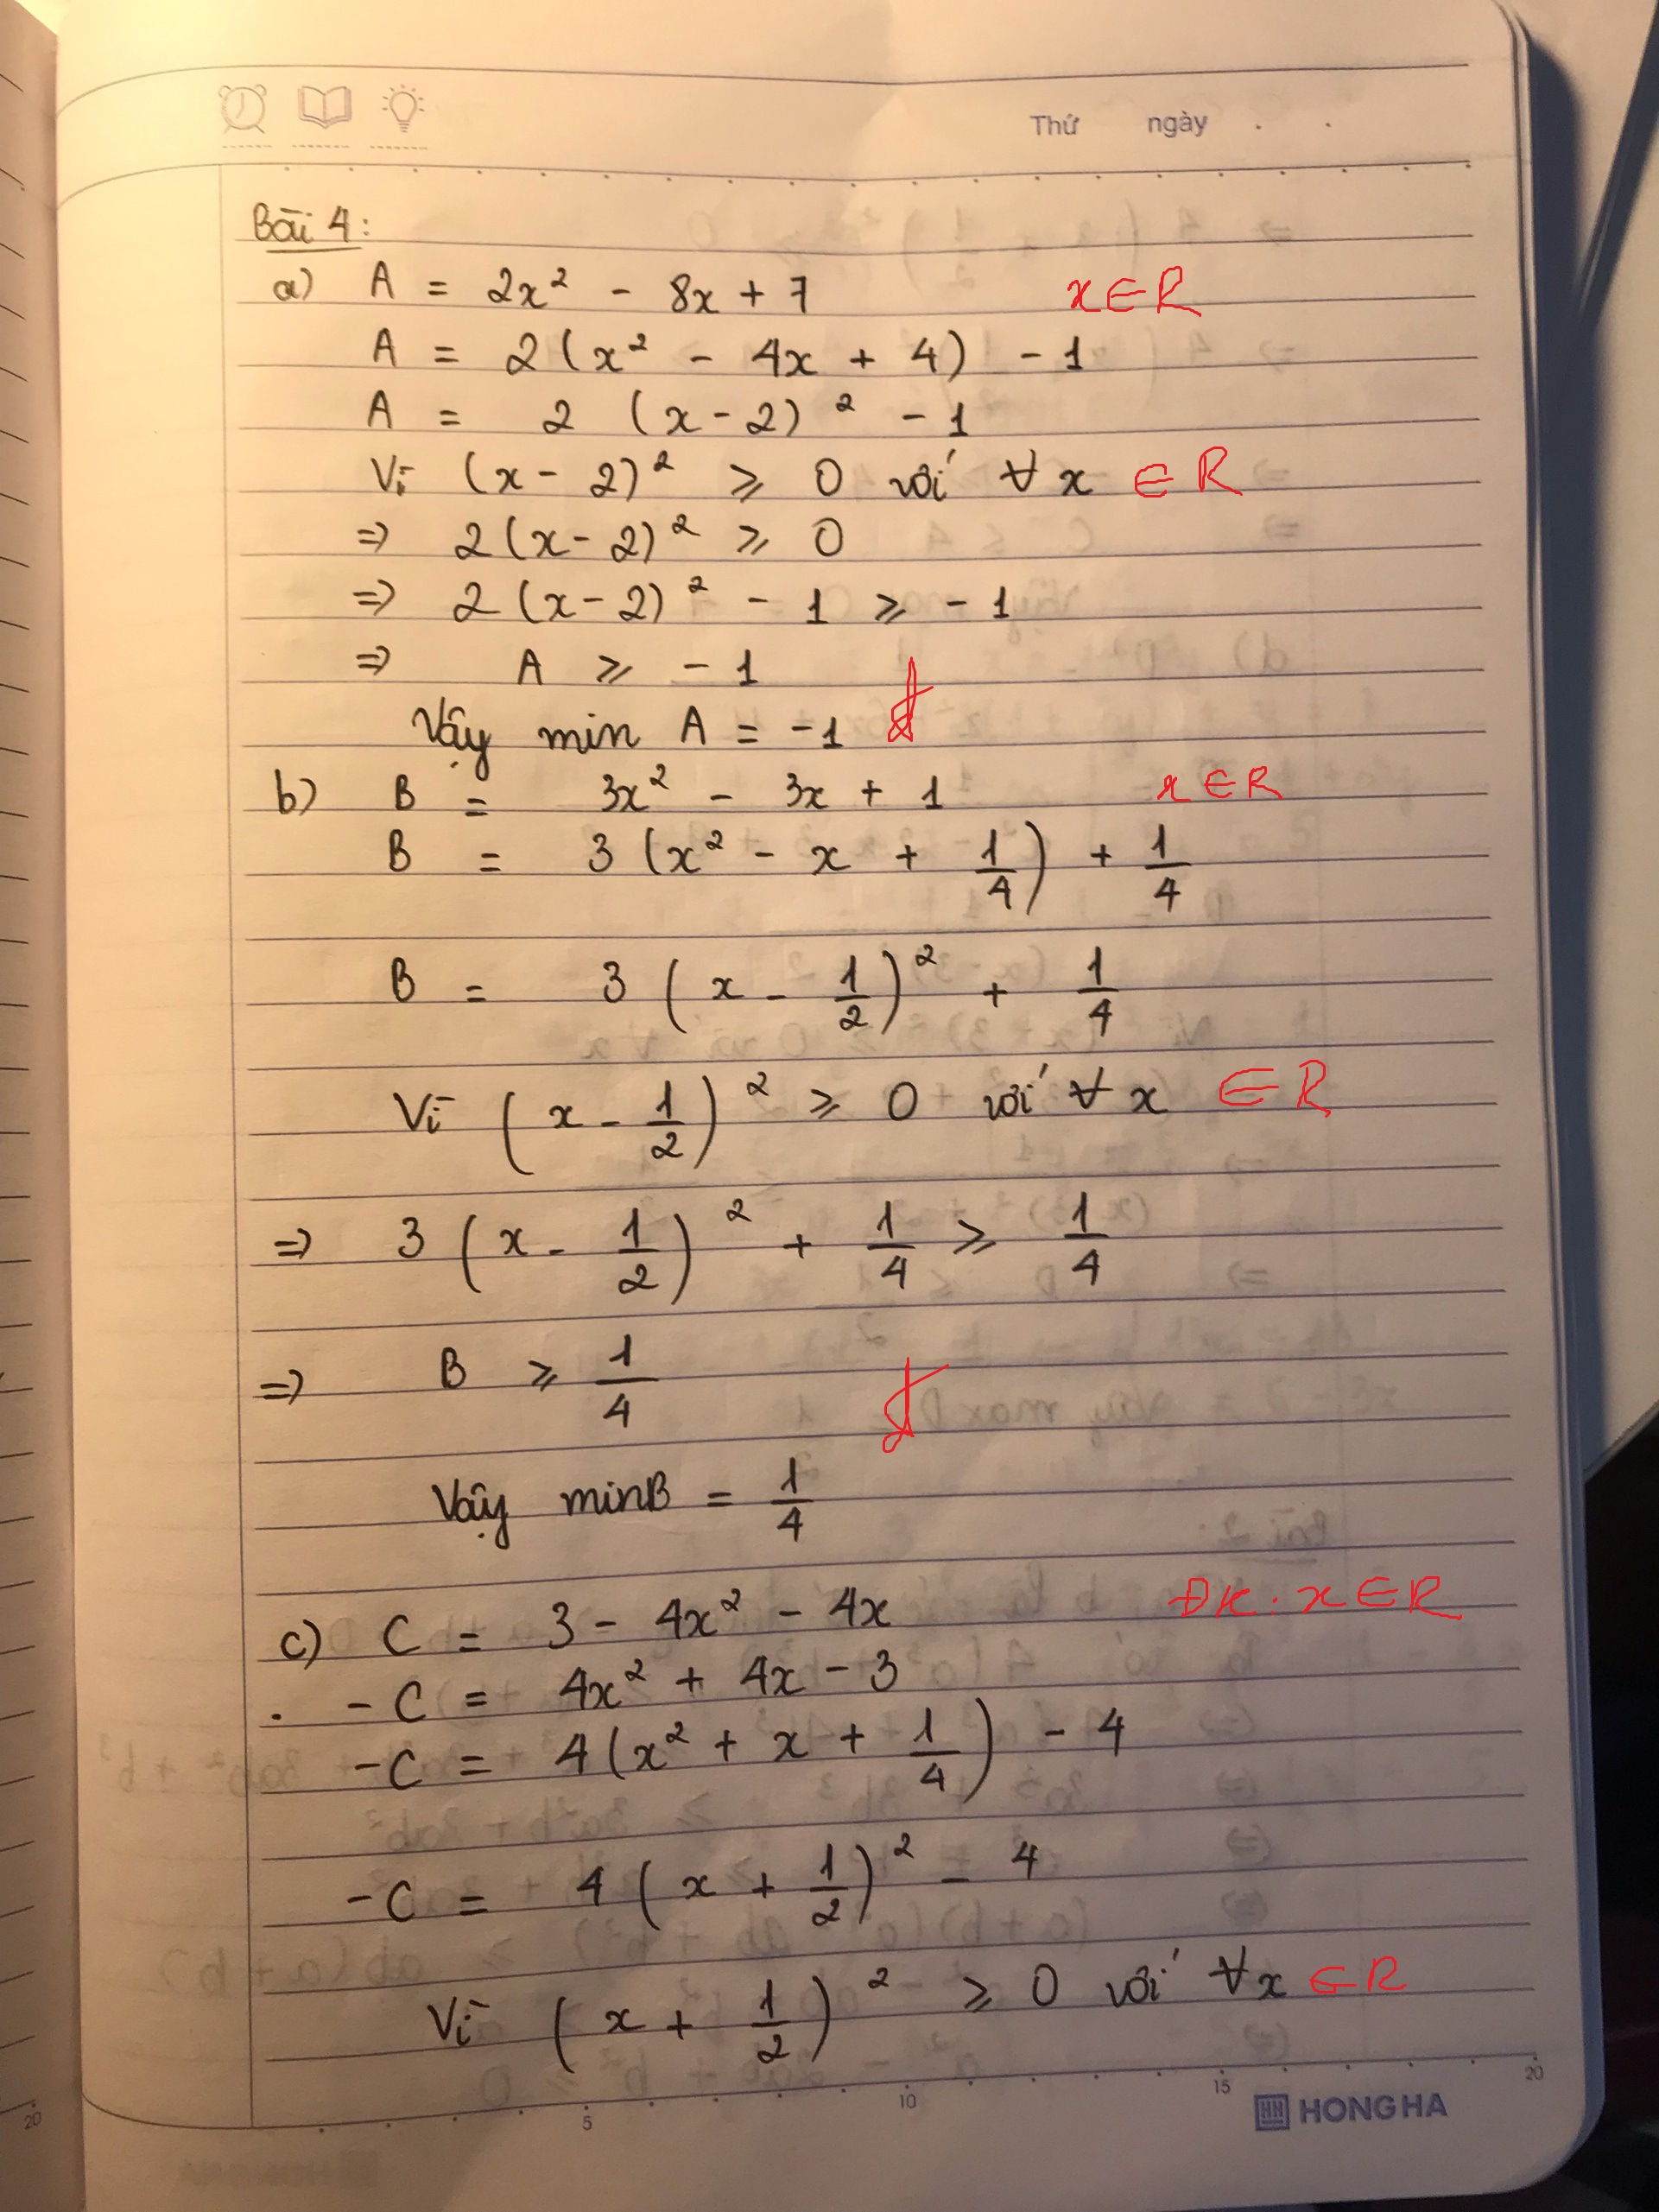 Thứ ngày . .
Bài 4:
a) A = 2x² - 8x + 7 x ∈ R
A = 2(x² - 4x + 4) - 1
A = 2 (x - 2)² - 1
Vì (x - 2)² ⩾ 0 với ∀ x ∈ R
=> 2(x - 2)² ⩾ 0
=> 2(x - 2)² - 1 ⩾ - 1
=> A ⩾ - 1
Vậy min A = -1 đ
b) B = 3x² - 3x + 1 x ∈ R
B = 3 (x² - x + 1/4) + 1/4
B = 3 (x - 1/2)² + 1/4
Vì (x - 1/2)² ⩾ 0 với ∀ x ∈ R
=> 3 (x - 1/2)² + 1/4 ⩾ 1/4
=> B ⩾ 1/4 đ
Vậy minB = 1/4
c) C = 3 - 4x² - 4x ĐK: x ∈ R
- C = 4x² + 4x - 3
- C = 4(x² + x + 1/4) - 4
- C = 4 (x + 1/2)² - 4
Vì (x + 1/2)² ⩾ 0 với ∀x ∈ R
5 10 15 20
HH HONG HA
20